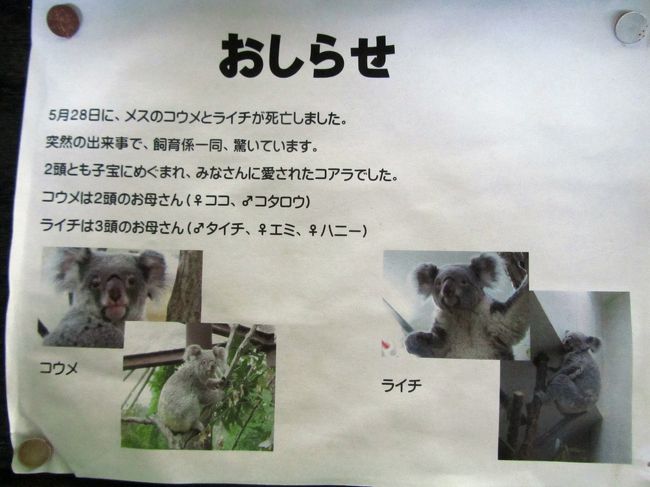 おしらせ
5月28日に、メスのコウメとライチが死亡しました。
突然の出来事で、飼育係一同、驚いています。
2頭とも子宝にめぐまれ、みなさんに愛されたコアラでした。
コウメは2頭のお母さん(♀ココ、♂コタロウ)
ライチは3頭のお母さん(♂タイチ、♀エミ、♀ハニー)
コウメ
ライチ